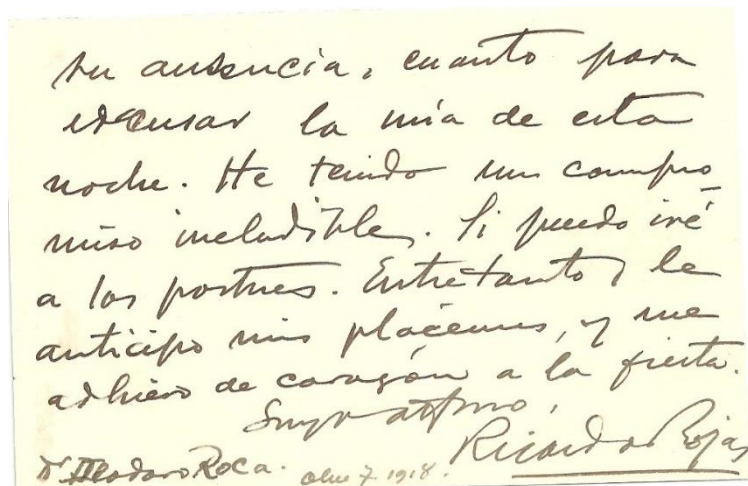 su ausencia, cuanto para
excusar la mía de esta
noche. He tenido un compro-
miso ineludible. Si puedo iré
a los postres. Entretanto, le
anticipo mis plácemes, y me
adhiero de corazón a la fiesta.
Suyo affmo,
Ricardo Rojas
Dr Deodoro Roca. 7 1918.